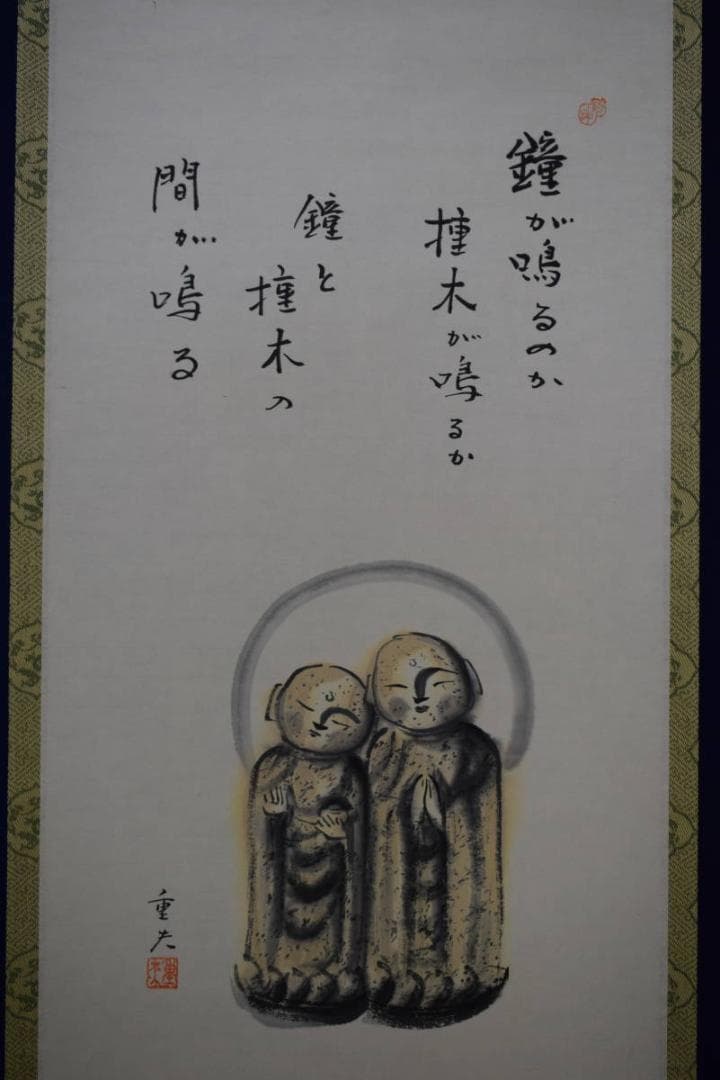 鐘が鳴るのか
撞木が鳴るか
鐘と
撞木の
間が鳴る
重夫